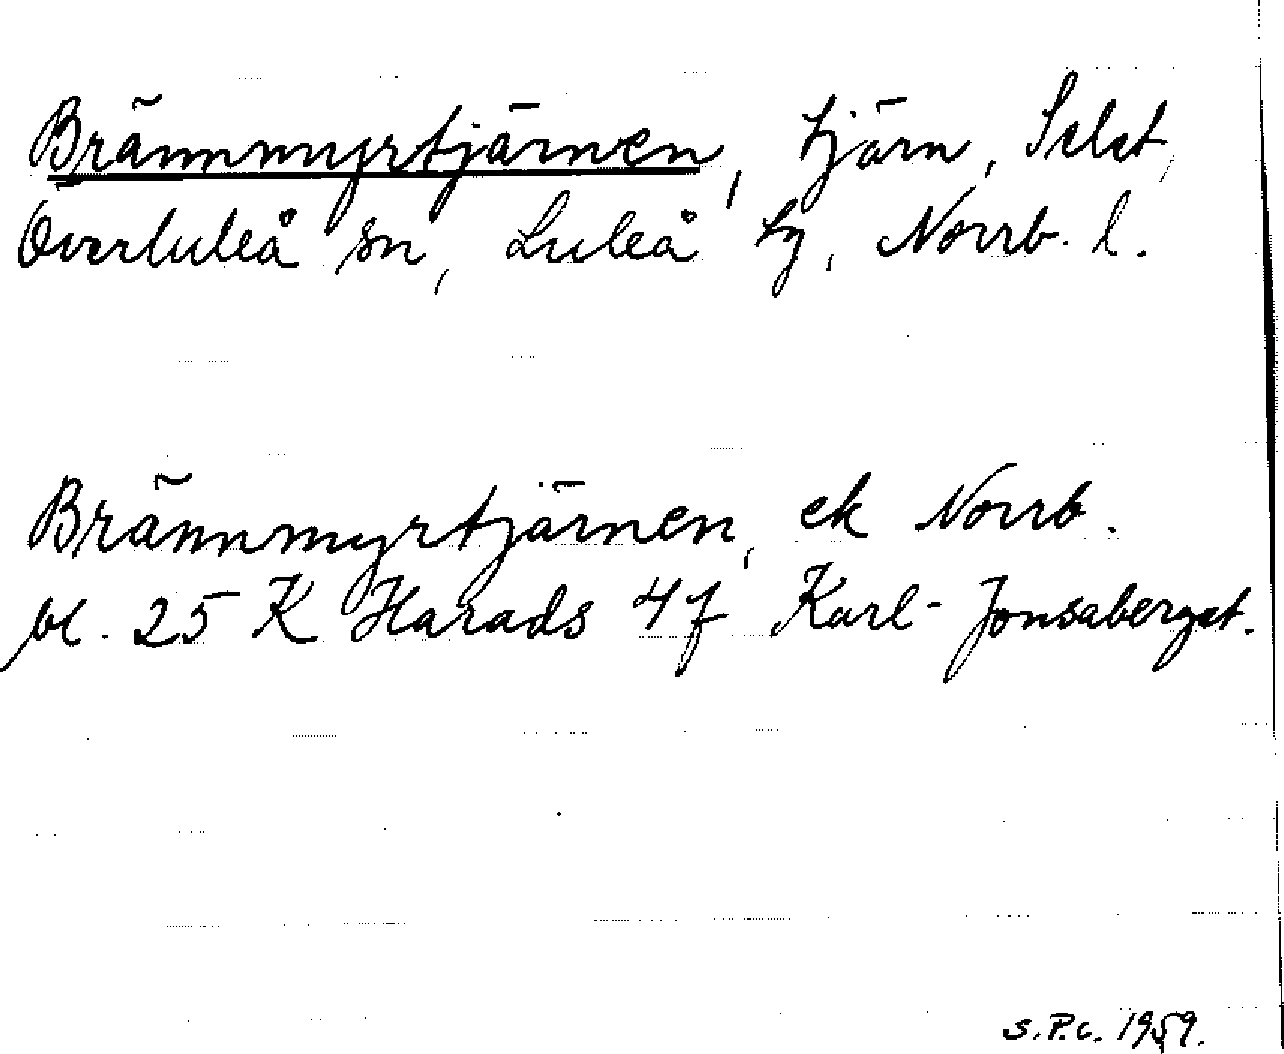 Brännmyrtjärnen, tjärn, Selet,
Överluleå sn, Luleå tg, Norrb. l.
Brännmyrtjärnen, ek Norrb.
bl. 25 K Harads 4f Karl-Jonsaberget.
S.P.C. 1959.